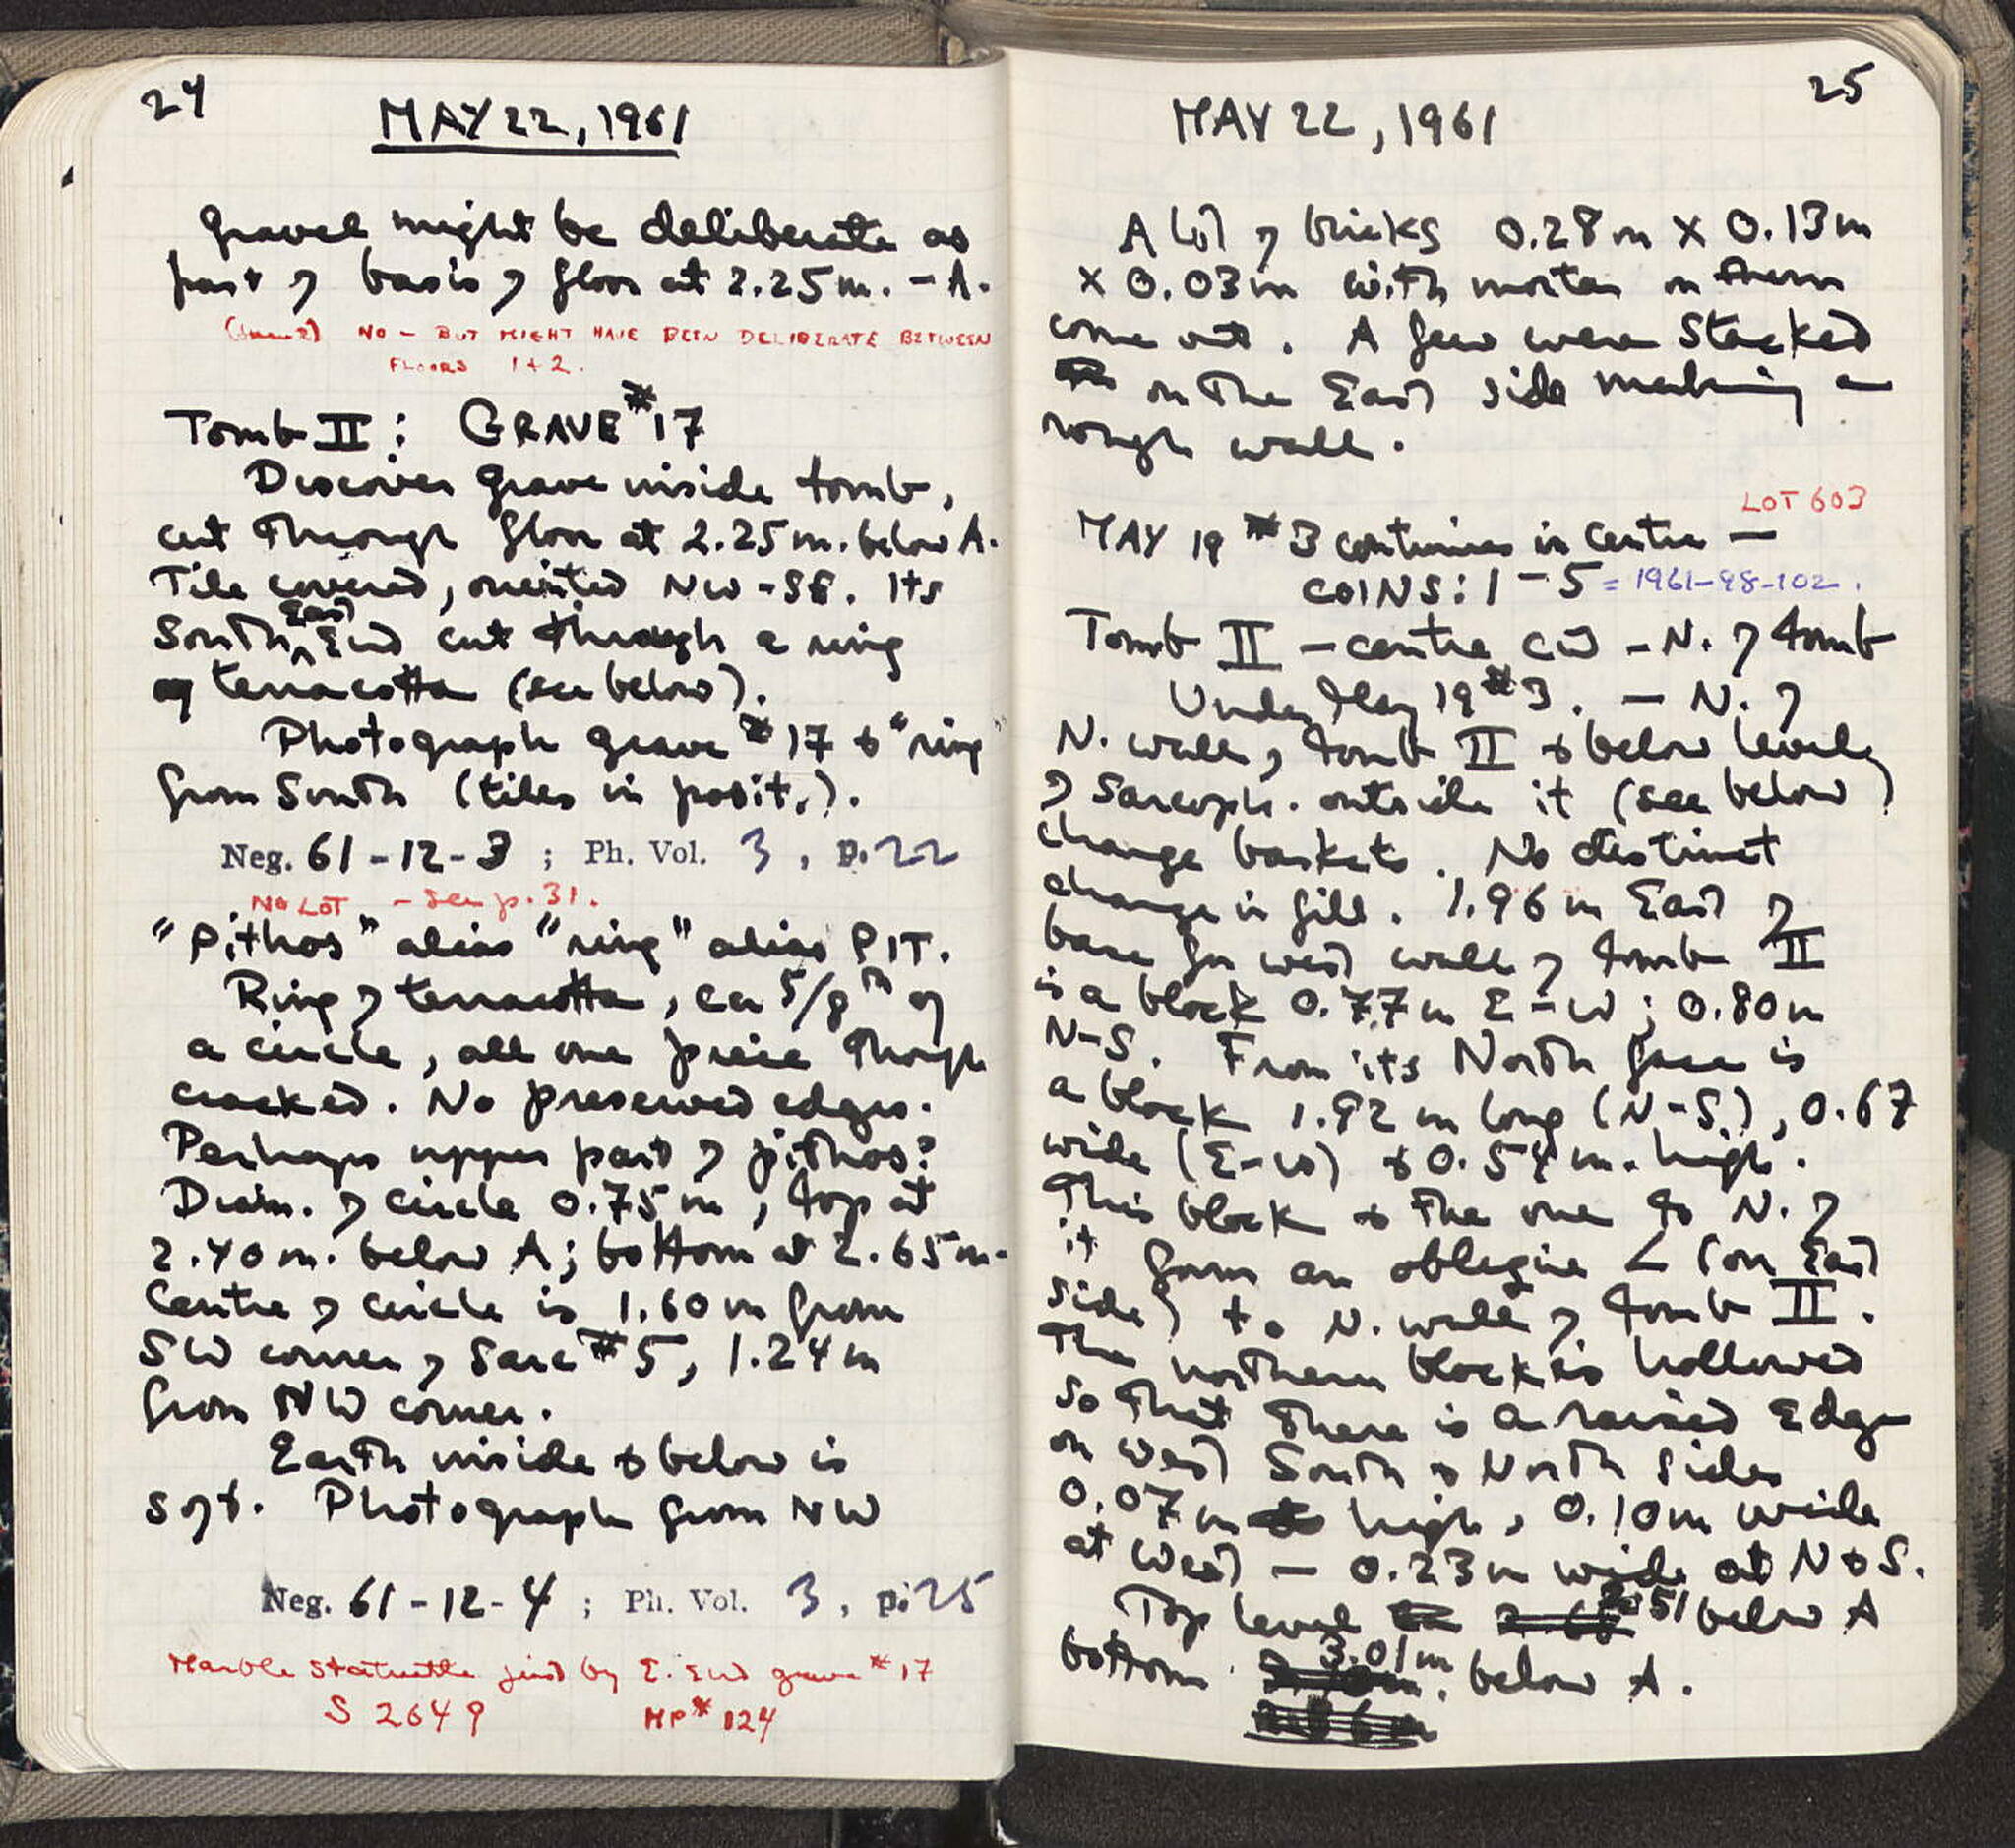 24
MAY 22, 1961
gravel might be deliberate as
part of basis of floor at 2.25m. - A.
NO - BUT MIGHT HAVE BEEN DELIBERATE BETWEEN
FLOORS 1+2.
Tomb II: GRAVE #17
Discover grave inside tomb,
cut through floor at 2.25m. below A.
Tile covered, oriented NW-SE. Its
South East End cut through a ring
of terracotta (see below).
Photograph grave #17 & "ring"
from South (tiles in posit.).
Neg. 61-12-3 ; Ph. Vol. 3, p. 22
NO LOT - See p. 31.
"Pithos" alias "ring" alias PIT.
Ring of terracotta, ca 5/8th of
a circle, all one piece though
cracked. No preserved edges.
Perhaps upper part of pithos?
Diam. of circle 0.75m, top at
2.40m. below A; bottom at 2.65m.
Centre of circle is 1.60m from
SW corner of Sarc #5, 1.24m
from NW corner.
Earth inside & below is
soft. Photograph from NW
Neg. 61-12-4 ; Ph. Vol. 3, p. 25
Marble statuette find by E. End grave #17
S 2649 MP# 124
25
MAY 22, 1961
A lot of bricks 0.28m X 0.13m
X 0.03m with mortar on them
come out. A few were stacked
on the East side making a
rough wall.
LOT 603
MAY 19 #3 continues in centre —
COINS: 1-5 = 1961-98-102.
Tomb II - centre cũ - N. of tomb
Under May 19 #3. - N. of
N. wall of tomb II & below level
of sarcoph. outside it (see below)
change baskets. No distinct
change in fill. 1.96m East of
base for west wall of tomb II
is a block 0.77m E-W; 0.80m
N-S. From its North face is
a block 1.92m long (N-S), 0.67
wide (E-W) & 0.54m. high.
This block & the one to N. of
it form an oblique ∠ (on East
side) to N. wall of tomb II.
The northern block is hollowed
so that there is a raised edge
on West South & North sides
0.07m high, 0.10m wide
at West - 0.23m wide at N & S.
Top level 2.51 below A
bottom 3.01m. below A.